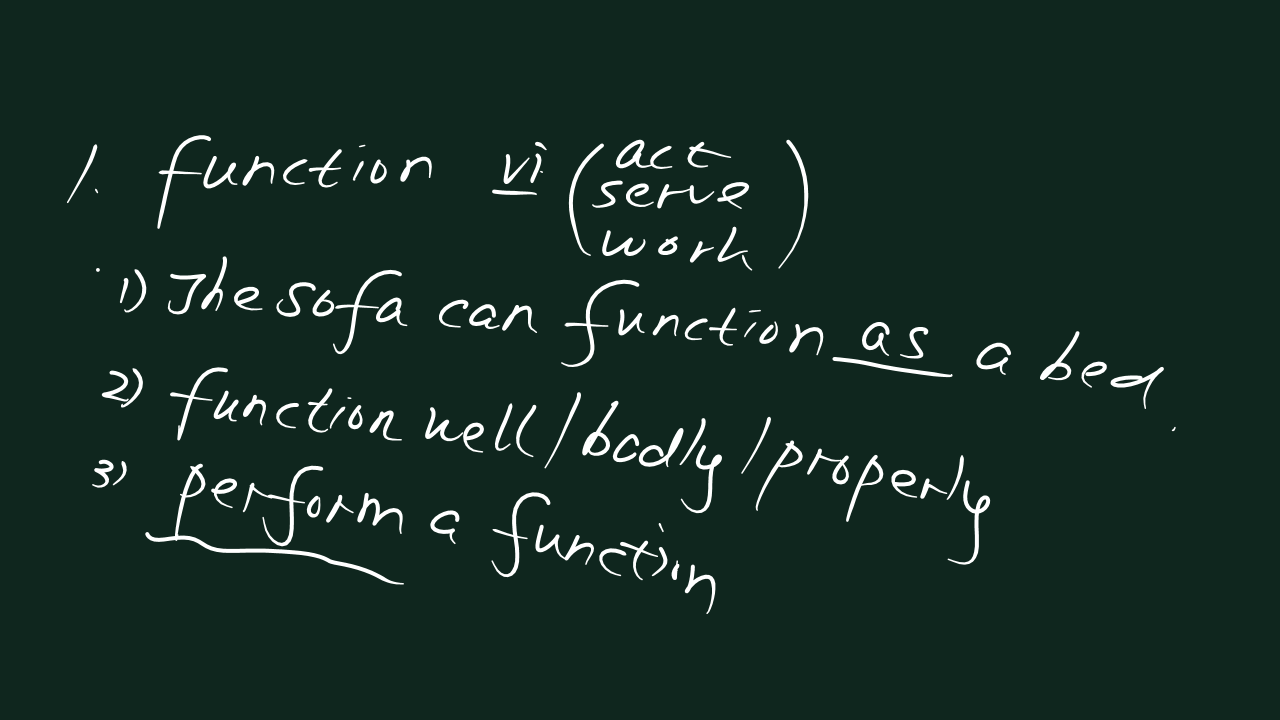 1. function vi (act
serve
work)
1) The sofa can function as a bed.
2) function well/badly/properly
3) perform a function